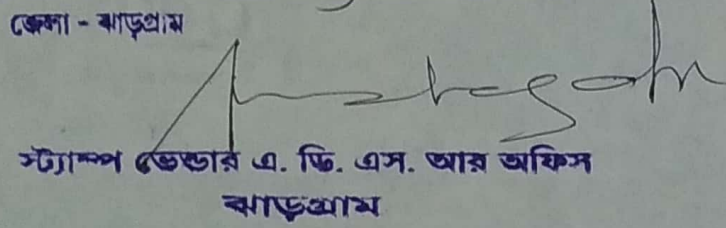 জেলা - ঝাড়গ্রাম
স্ট্যাম্প ভেন্ডার এ. ডি. এস. আর অফিস
ঝাড়গ্রাম